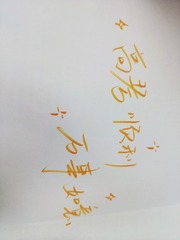 高考顺利
万事如意